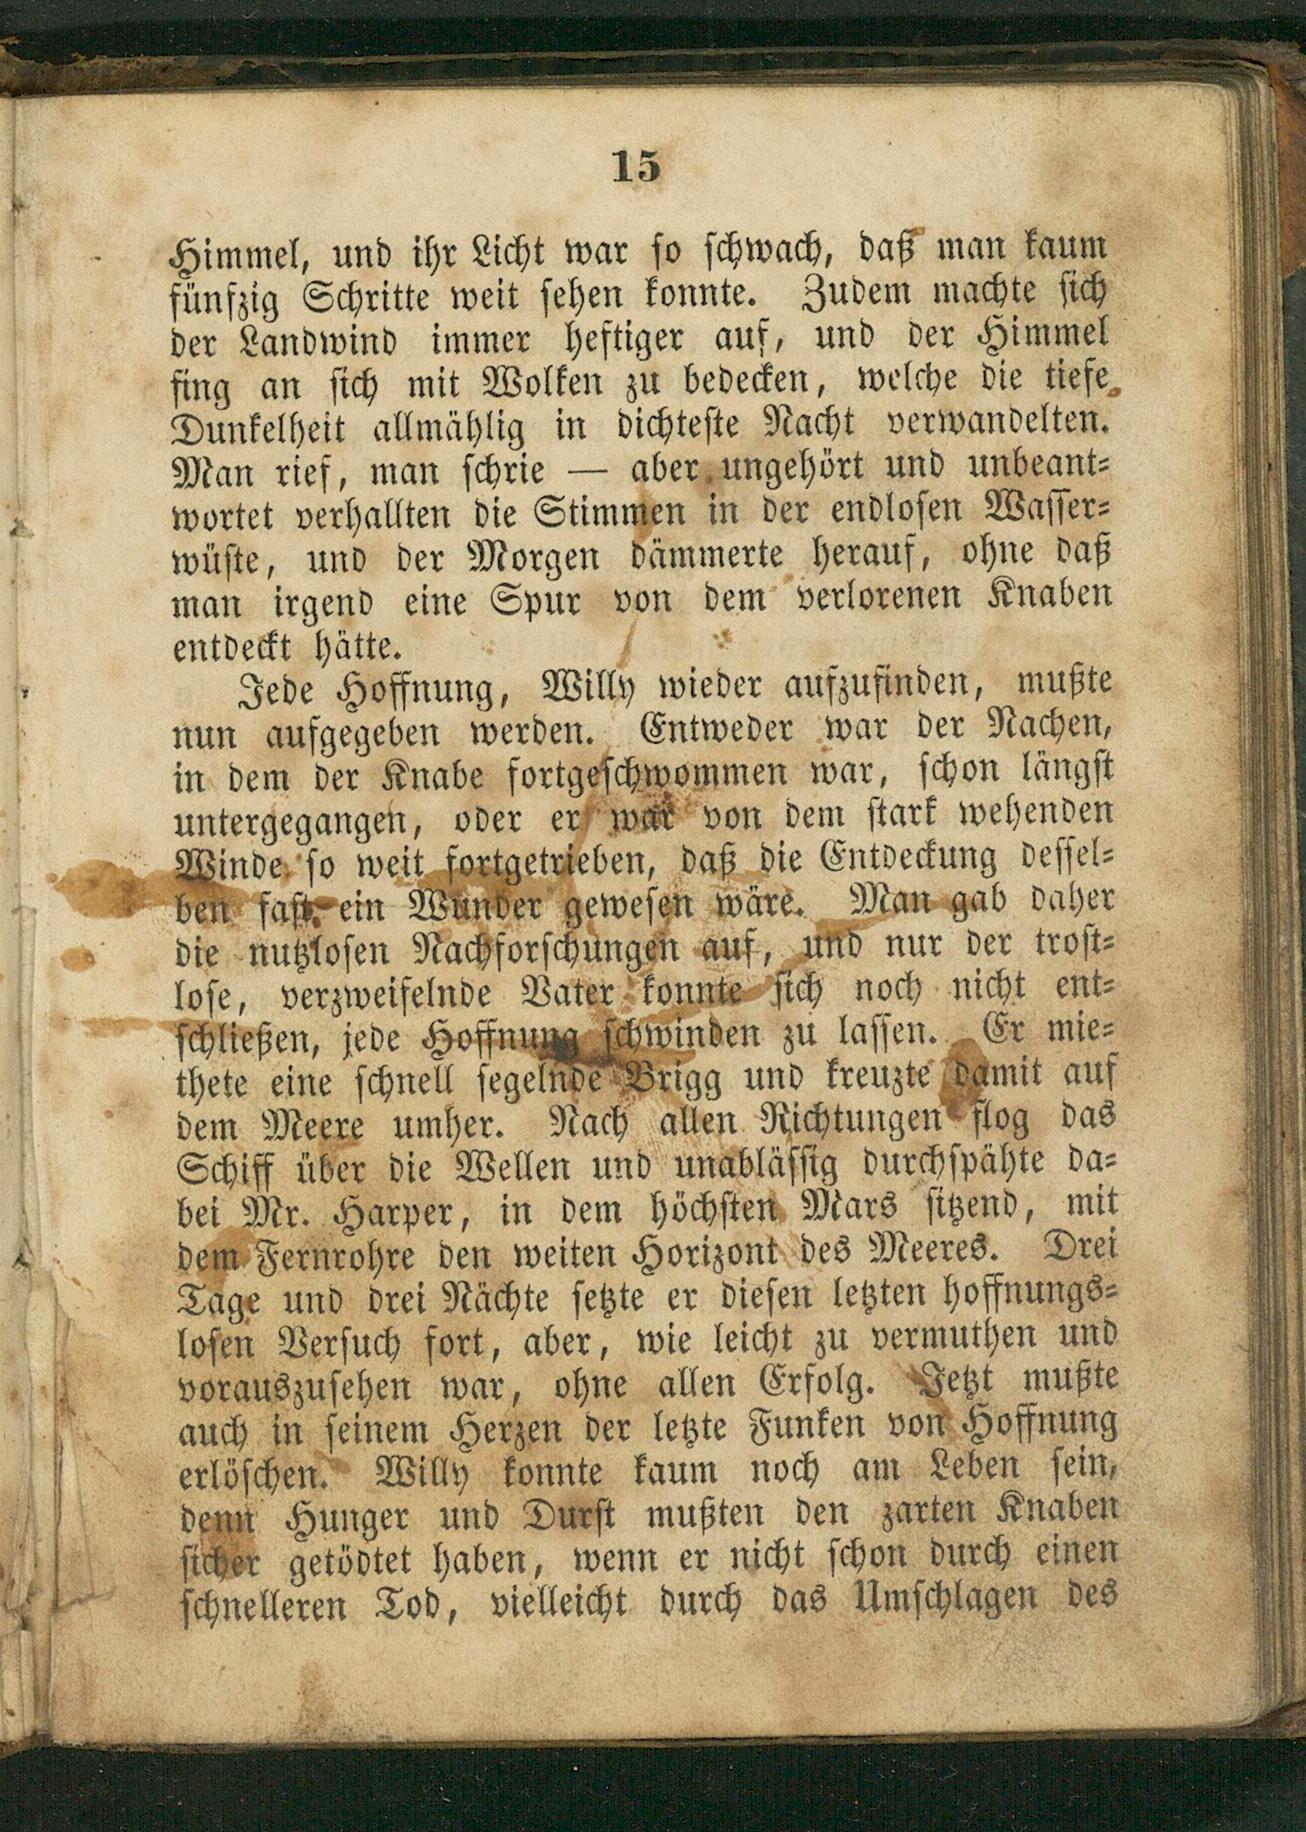 15
Himmel, und ihr Licht war so schwach, daß man kaum
fünfzig Schritte weit sehen konnte. Zudem machte sich
der Landwind immer heftiger auf, und der Himmel
fing an sich mit Wolken zu bedecken, welche die tiefe
Dunkelheit allmählig in dichteste Nacht verwandelten.
Man rief, man schrie — aber ungehört und unbeant-
wortet verhallten die Stimmen in der endlosen Wasser-
wüste, und der Morgen dämmerte herauf, ohne daß
man irgend eine Spur von dem verlorenen Knaben
entdeckt hätte.
Jede Hoffnung, Willy wieder aufzufinden, mußte
nun aufgegeben werden. Entweder war der Nachen,
in dem der Knabe fortgeschwommen war, schon längst
untergegangen, oder er war von dem stark wehenden
Winde so weit fortgetrieben, daß die Entdeckung dessel-
ben fast ein Wunder gewesen wäre. Man gab daher
die nutzlosen Nachforschungen auf, und nur der trost-
lose, verzweifelnde Vater konnte sich noch nicht ent-
schließen, jede Hoffnung schwinden zu lassen. Er mie-
thete eine schnell segelnde Brigg und kreuzte damit auf
dem Meere umher. Nach allen Richtungen flog das
Schiff über die Wellen und unablässig durchspähte da-
bei Mr. Harper, in dem höchsten Mars sitzend, mit
dem Fernrohre den weiten Horizont des Meeres. Drei
Tage und drei Nächte setzte er diesen letzten hoffnungs-
losen Versuch fort, aber, wie leicht zu vermuthen und
vorauszusehen war, ohne allen Erfolg. Jetzt mußte
auch in seinem Herzen der letzte Funken von Hoffnung
erlöschen. Willy konnte kaum noch am Leben sein,
denn Hunger und Durst mußten den zarten Knaben
sicher getödtet haben, wenn er nicht schon durch einen
schnelleren Tod, vielleicht durch das Umschlagen des